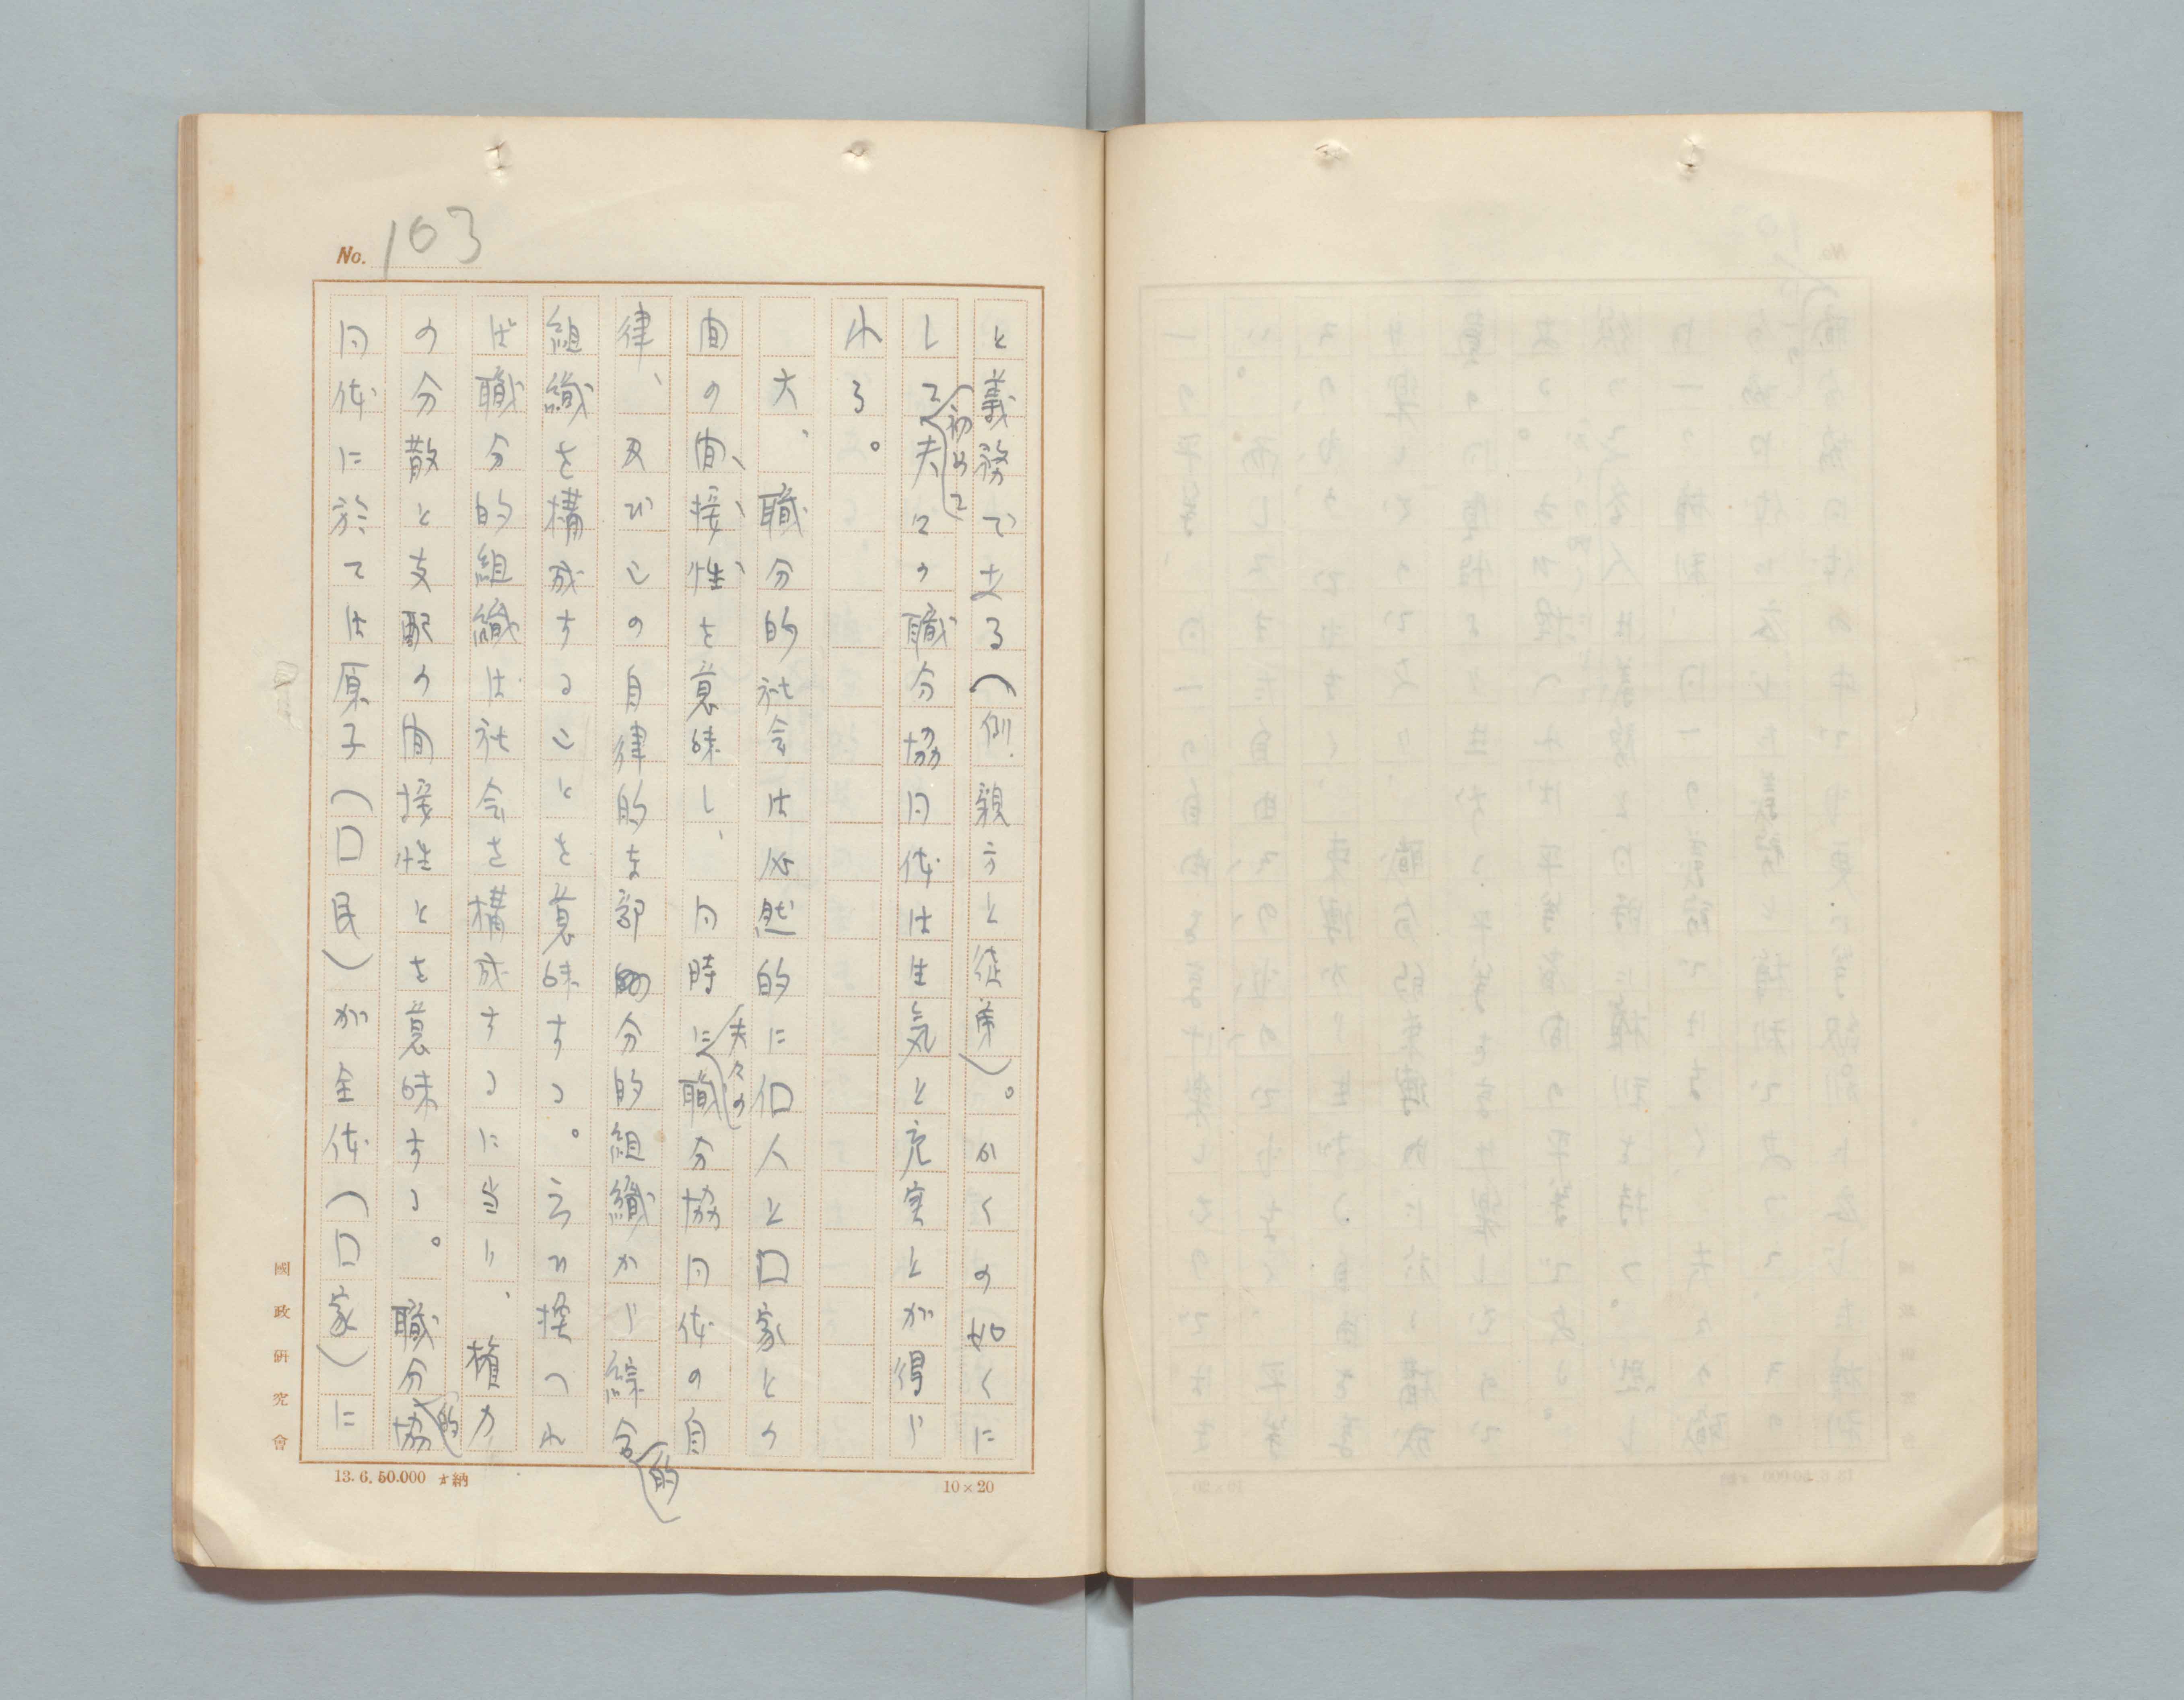 No. 103
と義務で る(例、親方と徒弟)。かくの如くに
して初めて夫々の職分協同体は生気と充実とが得ら
れる。
六、職分的社会は必然的に個人と国家との
間の間接性を意味し、同時に夫々の職分協同体の自
律、及びこの自律的な部分的組織から綜合的
組織を構成することを意味する。云ひ換へれ
ば職分的組織は社会を構成するに当り、権力
の分散と支配の間接性とを意味する。職分的協
同体に於ては原子(国民)が全体(国家)に
國政研究會
13.6.50.000 オ納
10×20